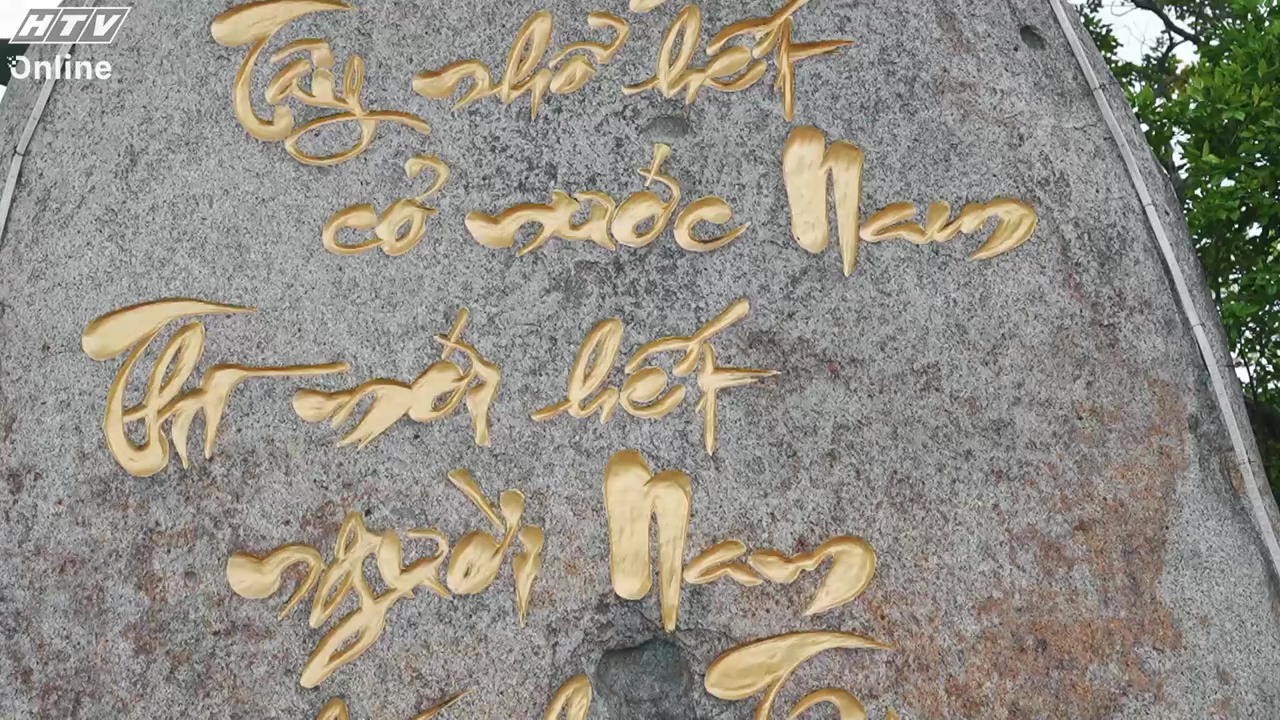 HTV
Online
Tây nhổ hết
cỏ nước Nam
Thì mới hết
người Nam